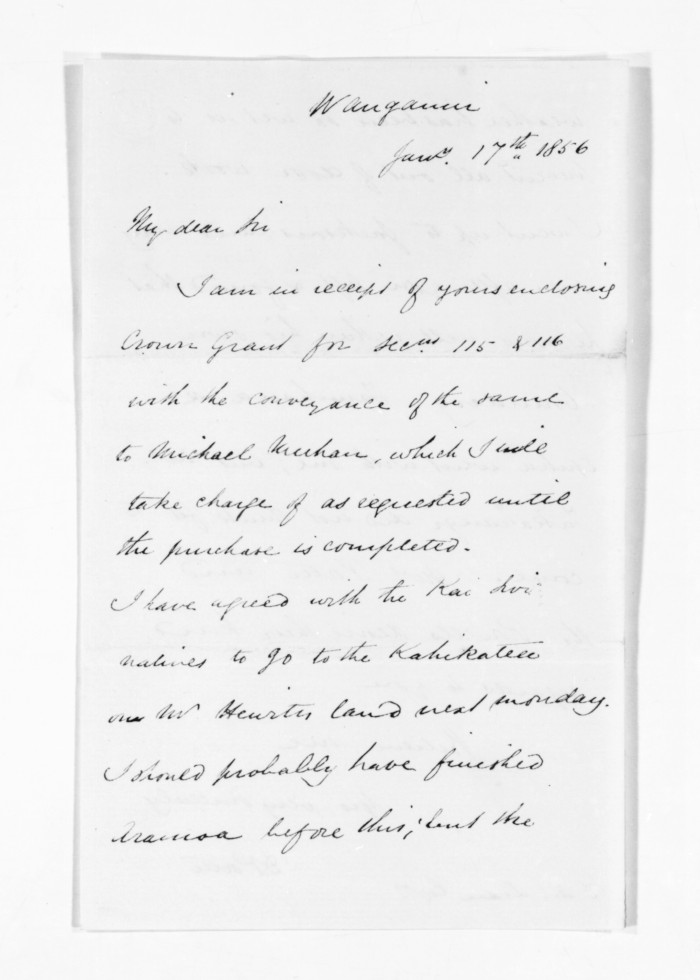 Wanganui
Jany. 17th 1856
My dear Sir
I am in receipt of yours enclosing
Crown Grant for Secns 115 & 116
with the conveyance of the same
to Michael Meehan, which I will
take charge of as requested until
the purchase is completed.
I have agreed with the Kai Iwi
natives to go to the Kahikatea
on Mr Hewitts land next monday.
I should probably have finished
Aramoa before this, but the